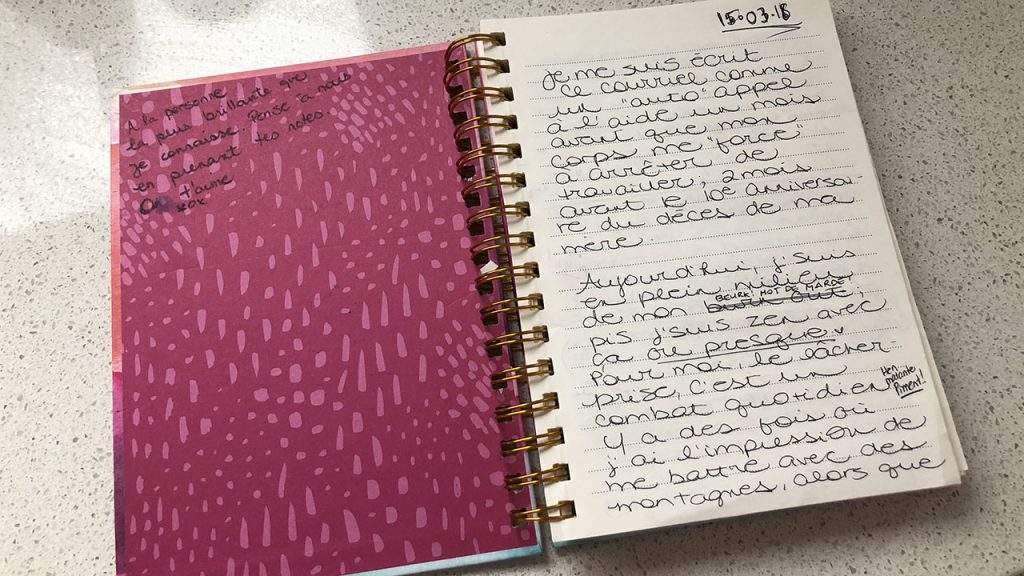 À la personne
la plus brillante que
je connaisse. Pense à nous
en prenant tes notes
t'aime
xox
15.03.18
Je me suis écrit
ce courriel comme
un "auto" appel
à l'aide un mois
avant que mon
corps me force
à arrêter de
travailler, 2 mois
avant le 10e anniversai-
re du décès de ma
mère.
Aujourd'hui, j'suis
en plein milieu
BEURK! MOT DE MARDE
de mon burn out,
pis j'suis zen avec
ça ou presque.
Pour moi, le lâcher-
prise, c'est un
combat quotidien
Hen
matante
Piment!
Y a des fois où
j'ai l'impression de
me battre avec des
montagnes, alors que